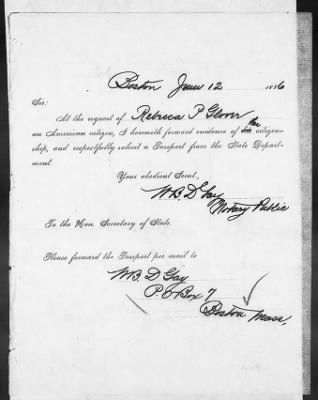 Boston June 12 1886
Sir:
At the request of Rebecca P Glover
an American citizen, I herewith forward evidence of his her citizen-
ship, and respectfully solicit a Passport from the State Depart-
ment.
Your obedient Servt,
W B. D Gay
Notary Public
To the Hon. Secretary of State.
Please forward the Passport per mail to
W B. D Gay
P. O Box 7
Boston Mass,